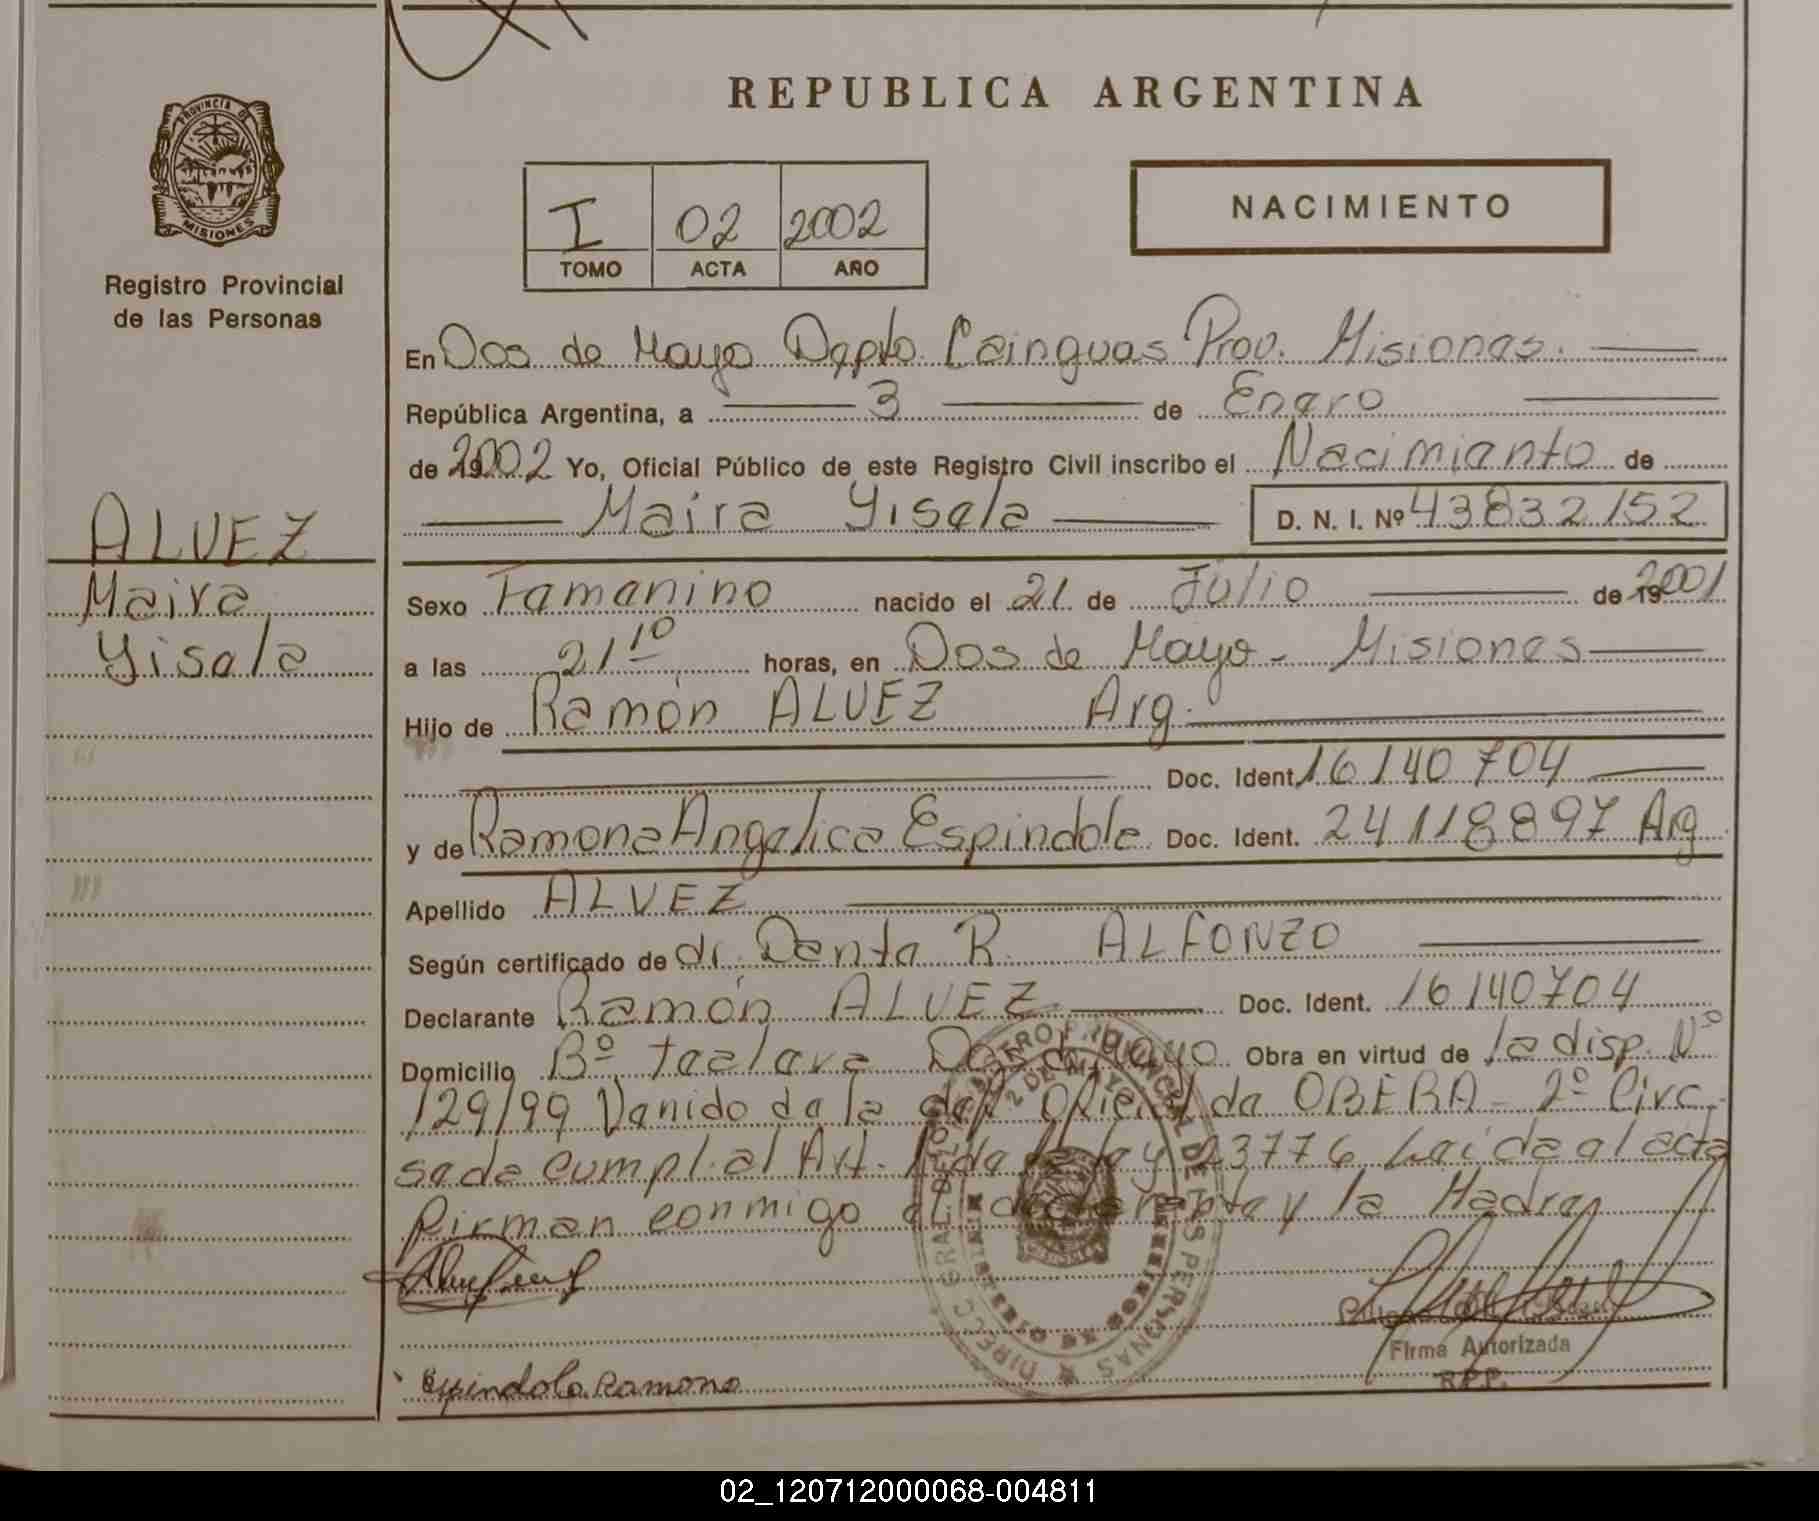 REPUBLICA ARGENTINA
PROVINCIA DE
MISIONES
Registro Provincial
de las Personas
I 02 2002
TOMO ACTA AÑO
NACIMIENTO
En Dos de Mayo Depto. Cainguas Prov. Misiones.
República Argentina, a 3 de Enero
de 2002 Yo, Oficial Público de este Registro Civil inscribo el Nacimiento de
Maira Yisela D. N. I. Nº 43832152
ALVEZ
Maira
Yisela
Sexo Femenino nacido el 21 de Julio de 2001
a las 21 10 horas, en Dos de Mayo - Misiones
Hijo de Ramón ALVEZ Arg.
Doc. Ident. 16140704
y de Ramona Angelica Espindole Doc. Ident. 24118897 Arg
Apellido ALVEZ
Según certificado de dr. Dante R. ALFONZO
Declarante Ramón ALVEZ Doc. Ident. 16140704
Domicilio Bº Dos de Mayo Obra en virtud de la disp. Nº
129/99 Venido de la de OBERA - 2º Circ.
se de cumpl. al Art. de la ley 23776 Leida el acta
firman conmigo el declarante y la Madre
Firma Autorizada
R.P.P.
Espindola Ramona
02_120712000068-004811